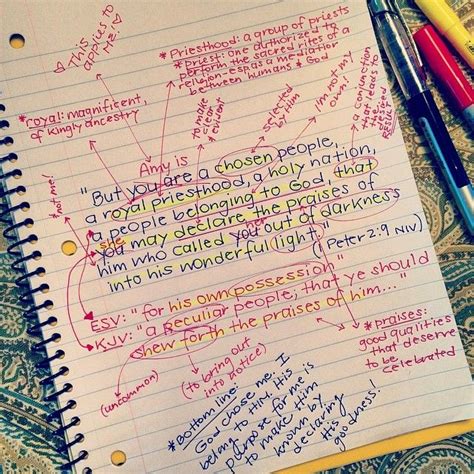 This
applies to
ME!
*Priesthood: a group of priests
*priest: one authorized to
perform the sacred rites of a
religion-esp. as a mediator
between humans & God
*royal: magnificent,
of kingly ancestry
to make
clear &
evident
selected
by Him
I'm not my
own!
a conjunction
that leads to
the
desired
RESULT
Amy is
*not me!
"But you are a chosen people,
a royal priesthood, a holy nation,
a people belonging to God, that
she
you may declare the praises of
him who called you out of darkness
into his wonderful light."
(1 Peter 2:9 NIV)
ESV: "for his own possession"
KJV: "a peculiar people; that ye should
shew forth the praises of him..."
(uncommon)
(to bring out
into notice)
*praises:
good qualities
that deserve
to be
celebrated
*Bottom line:
God chose me. I
belong to Him. His
purpose for me is
to make Him
known by
declaring
His
goodness!